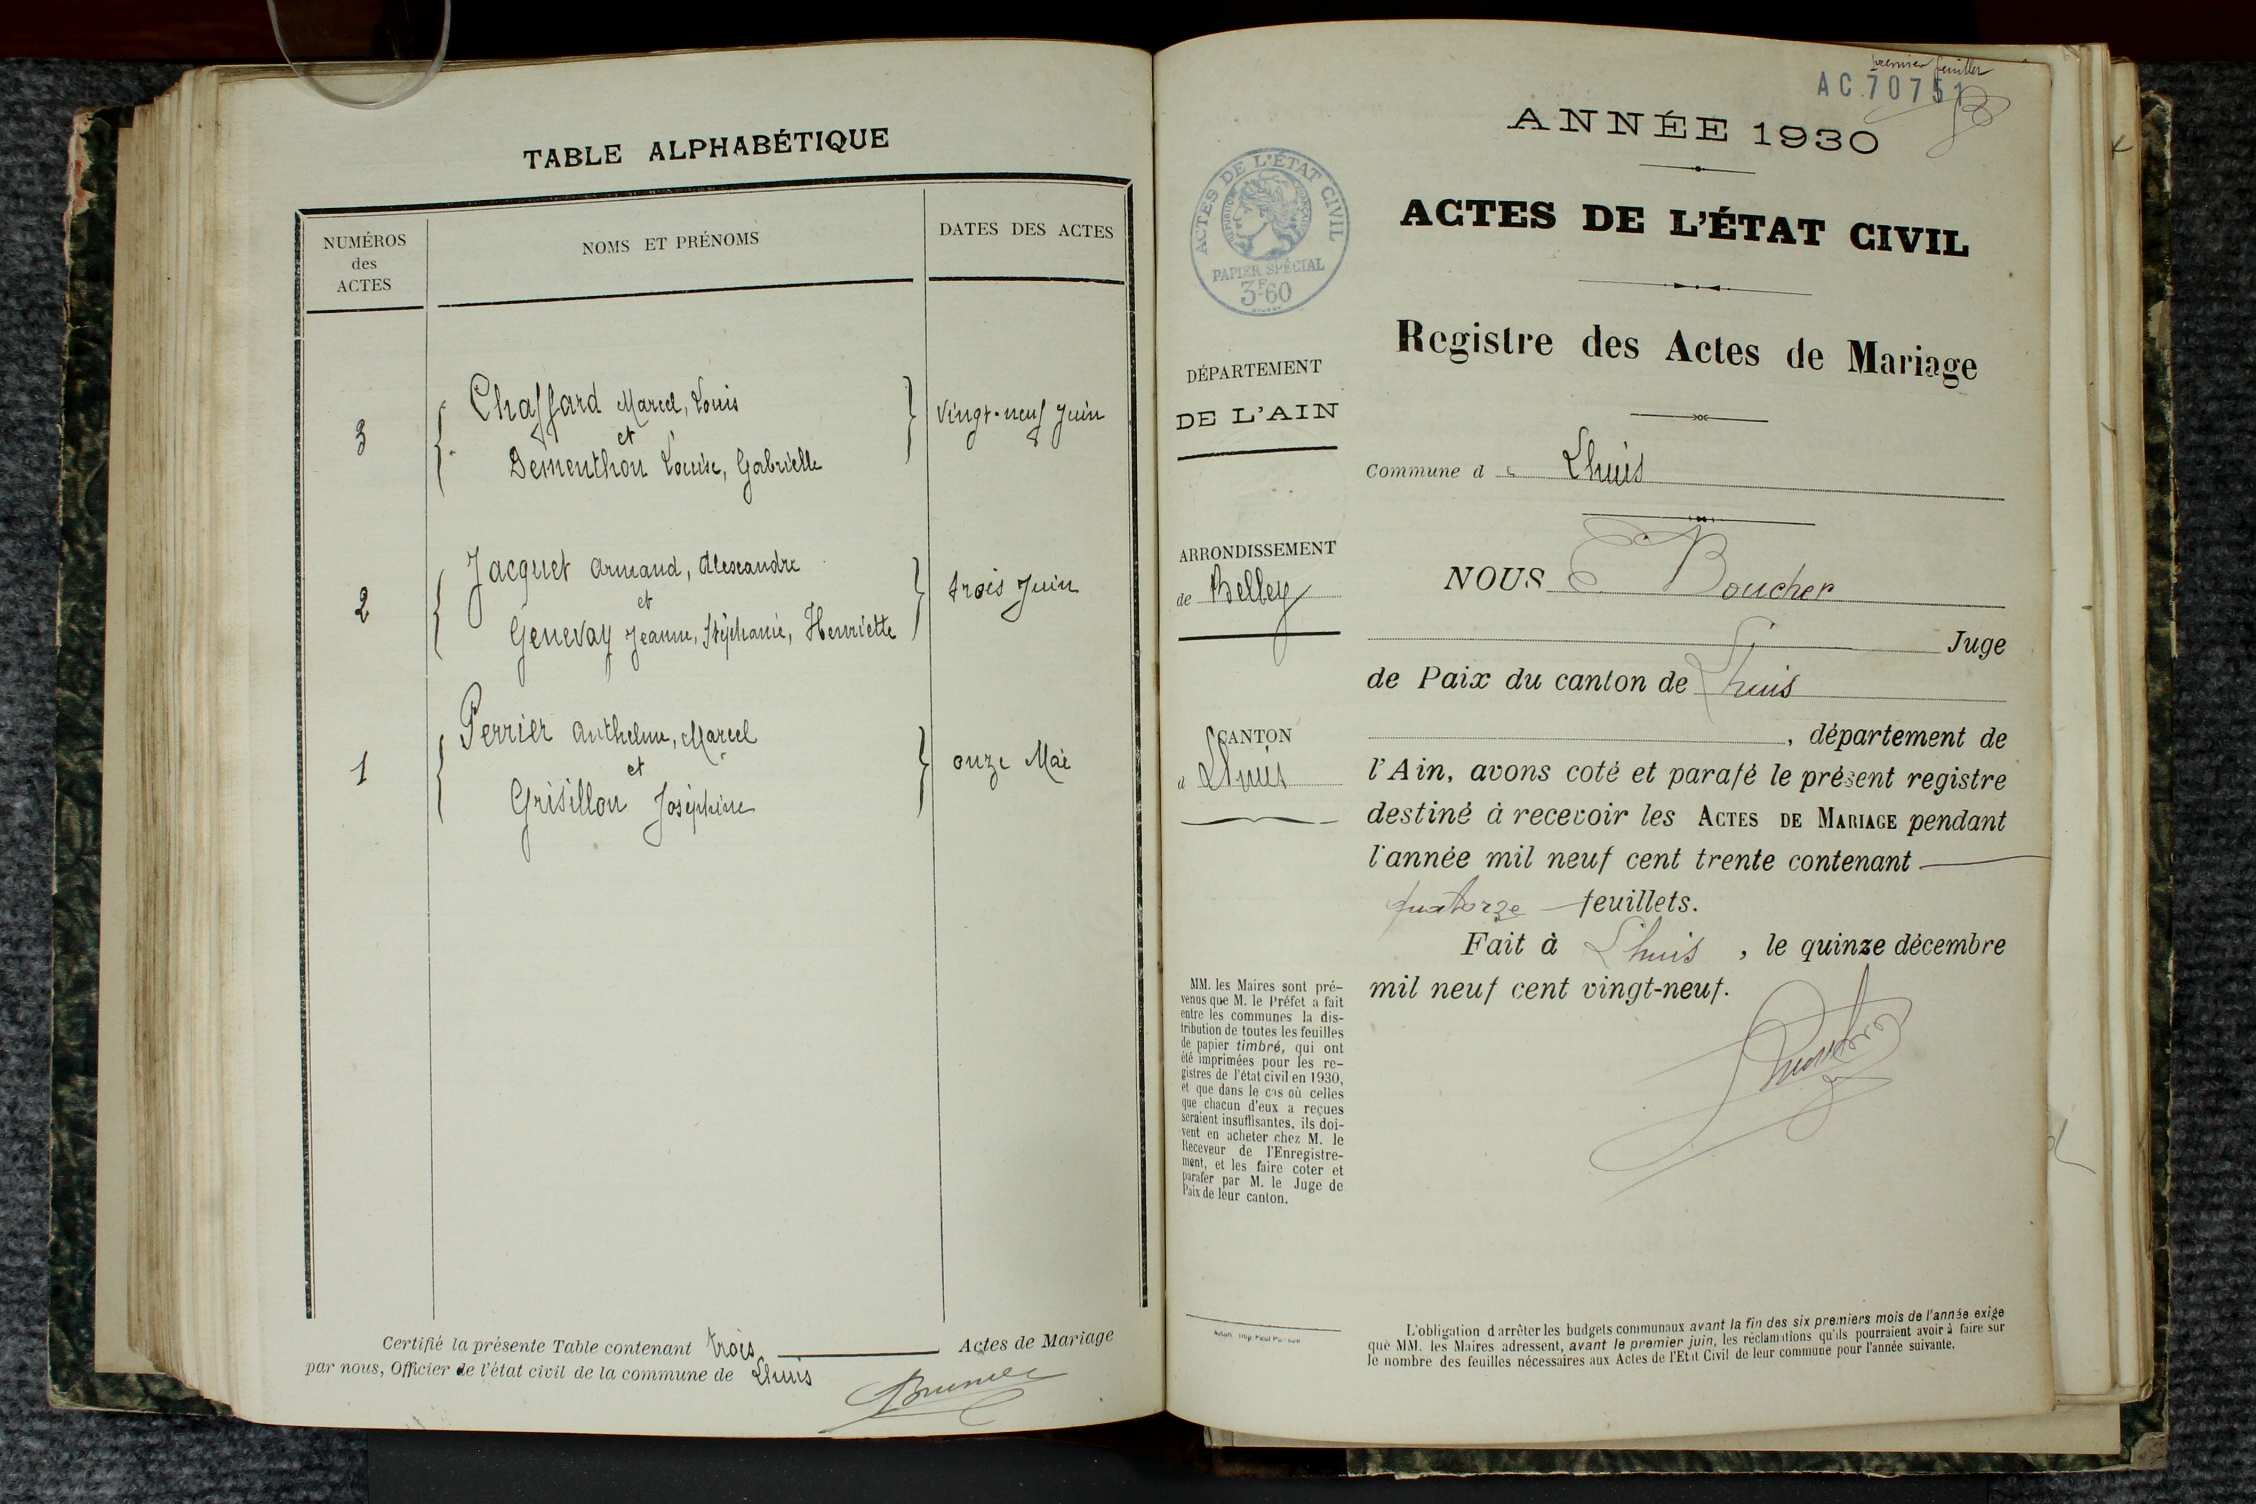 TABLE ALPHABÉTIQUE
NUMÉROS
des
ACTES
NOMS ET PRÉNOMS
DATES DES ACTES
3
Chaffard Marcel, Louis
et
Dementhon Louise, Gabrielle
Vingt-neuf Juin
2
Jacquet Armand, Alexandre
et
Genevay Jeanne, Stéphanie, Henriette
trois Juin
1
Perrier Anthelme, Marcel
et
Grisillon Joséphine
onze Mai
Certifié la présente Table contenant trois Actes de Mariage
par nous, Officier de l'état civil de la commune de Lhuis
premier feuillet
AC 70751
ANNÉE 1930
ACTES DE L'ÉTAT CIVIL
ACTES DE L'ÉTAT CIVIL
RÉPUBLIQUE FRANÇAISE
PAPIER SPÉCIAL
3F60
Registre des Actes de Mariage
DÉPARTEMENT
DE L'AIN
Commune d e Lhuis
ARRONDISSEMENT
de Belley
CANTON
d Lhuis
NOUS Boucher
Juge
de Paix du canton de Lhuis
, département de
l'Ain, avons coté et parafé le présent registre
destiné à recevoir les ACTES DE MARIAGE pendant
l'année mil neuf cent trente contenant
quatorze feuillets.
Fait à Lhuis, le quinze décembre
mil neuf cent vingt-neuf.
MM. les Maires sont pré-
venus que M. le Préfet a fait
entre les communes la dis-
tribution de toutes les feuilles
de papier timbré, qui ont
été imprimées pour les re-
gistres de l'état civil en 1930,
et que dans le cas où celles
que chacun d'eux a reçues
seraient insuffisantes, ils doi-
vent en acheter chez M. le
Receveur de l'Enregistre-
ment, et les faire coter et
parafer par M. le Juge de
Paix de leur canton.
L'obligation d'arrêter les budgets communaux avant la fin des six premiers mois de l'année exige
que MM. les Maires adressent, avant le premier juin, les réclamations qu'ils pourraient avoir à faire sur
le nombre des feuilles nécessaires aux Actes de l'Etat Civil de leur commune pour l'année suivante.